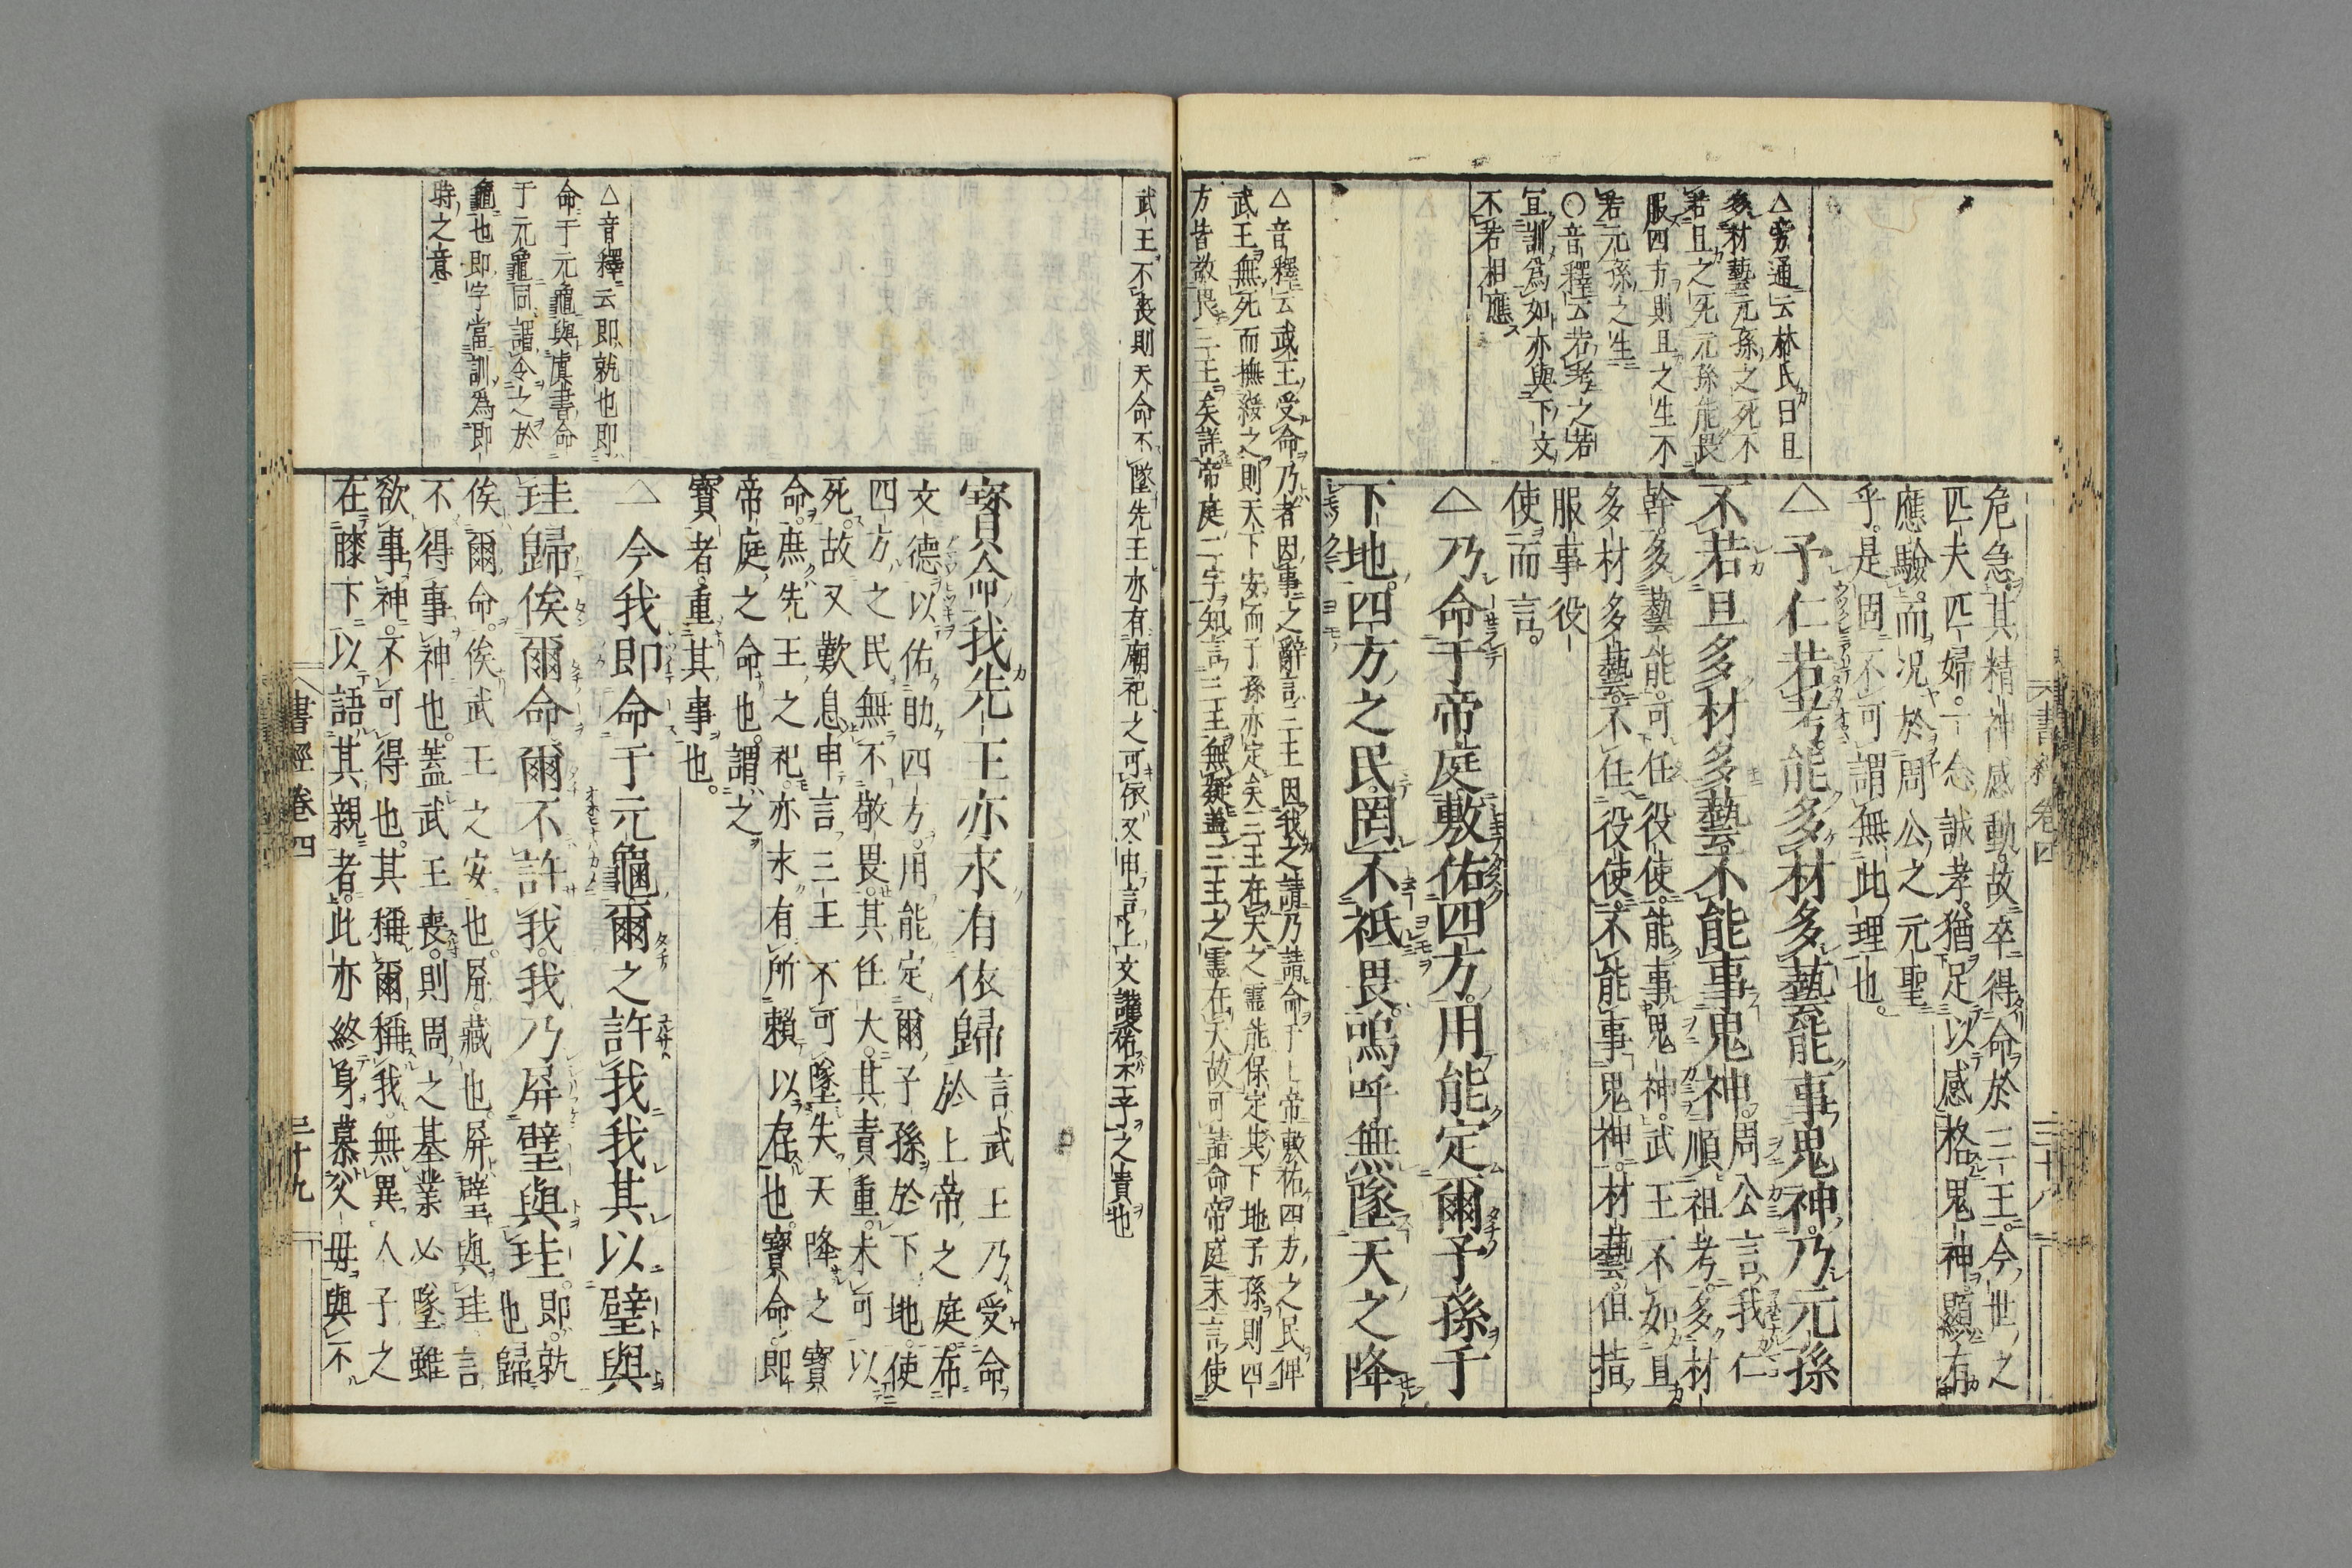 △旁通云林氏曰旦
多材藝元孫之死不
若旦之死元孫能畏
服四方則旦之生不
若元孫之生
○音釋云若考之若
宜訓為如亦與下文
不若相應
危急其精神感動故卒得命於三王今世之
匹夫匹婦一念誠孝猶足以感格鬼神顯有
應驗而况於周公之元聖
乎是固不可謂無此理也
△予仁若考能多材多藝能事鬼神乃元孫
不若旦多材多藝不能事鬼神周公言我仁
順祖考多材
幹多藝能可任役使能事鬼神武王不如旦
多材多藝不任役使不能事鬼神材藝但指
服事役
使而言
△乃命于帝庭敷佑四方用能定爾子孫于
下地四方之民罔不祗畏嗚呼無墜天之降
△音釋云武王受命乃者因事之辭言三王因我之請乃請命于上帝敷佑四方之民俾
武王無死而撫綏之則天下安而子孫亦定矣三王在天之靈能保定其下地子孫則四
方皆敬畏三王矣詳帝庭二字知言三王無疑蓋三王之靈在天故可請命帝庭末言使
武王不喪則天命不墜先王亦有廟祀之可依又申言上文護佑丕子之責也
寶命我先王亦永有依歸言武王乃受命
於上帝之庭布
文德以佑助四方用能定爾子孫於下地使
四方之民無不敬畏其任大其責重未可以
死故又歎息申言三王不可墜失天降之寶
命庶先王之祀亦永有所賴以存也寶命即
帝庭之命也謂之
寶者重其事也
△音釋云即就也即
命于元龜與虞書命
于元龜同謂令之於
龜也即字當訓為即
時之意
△今我即命于元龜爾之許我我其以璧與
珪歸俟爾命爾不許我我乃屏璧與珪即就
也歸
俟爾命俟武王之安也屏藏也屏璧與珪言
不得事神也蓋武王喪則周之基業必墜雖
欲事神不可得也其稱爾稱我無異人子之
在膝下以語其親者此亦終身慕父母與不
書經卷四
三十九